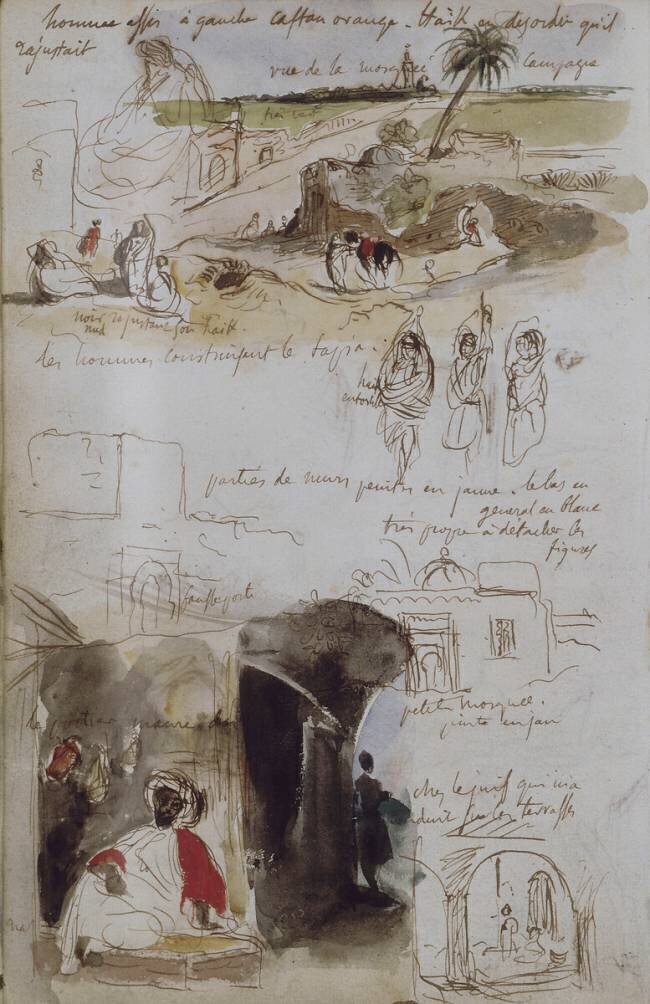 homme assis à gauche caftan orange. Haïk en desordre qu'il
rajustait
vue de la mosquée
Campagne
tres vert
noir rajustant son haik
nud
des hommes construisent le
haik
entortillé
parties de murs peintes en jaune. le bas en
general en blanc
très propre à détacher les
figures
fausse porte
petite mosquée.
peinte en jau
le portier maure
chez le juif qui m'a
duit sur les terrasses